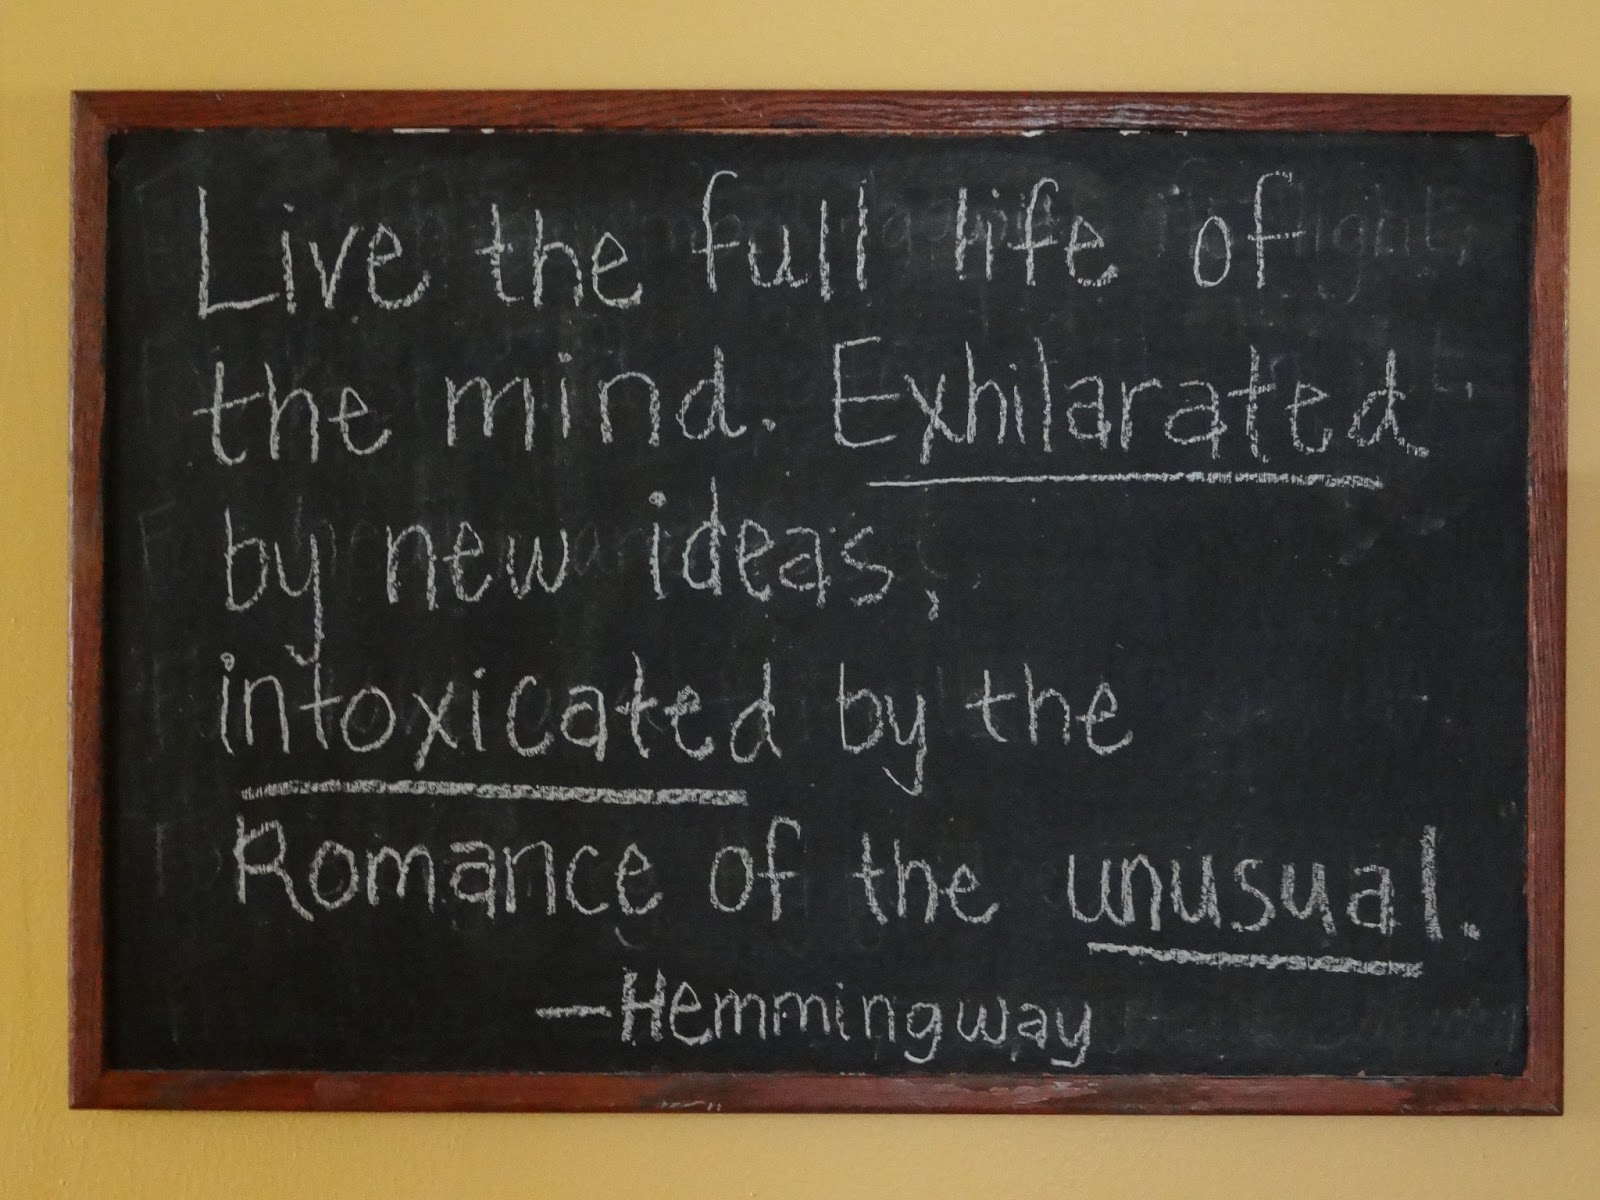 Live the full life of
the mind. Exhilarated
by new ideas,
intoxicated by the
Romance of the unusual.
—Hemmingway